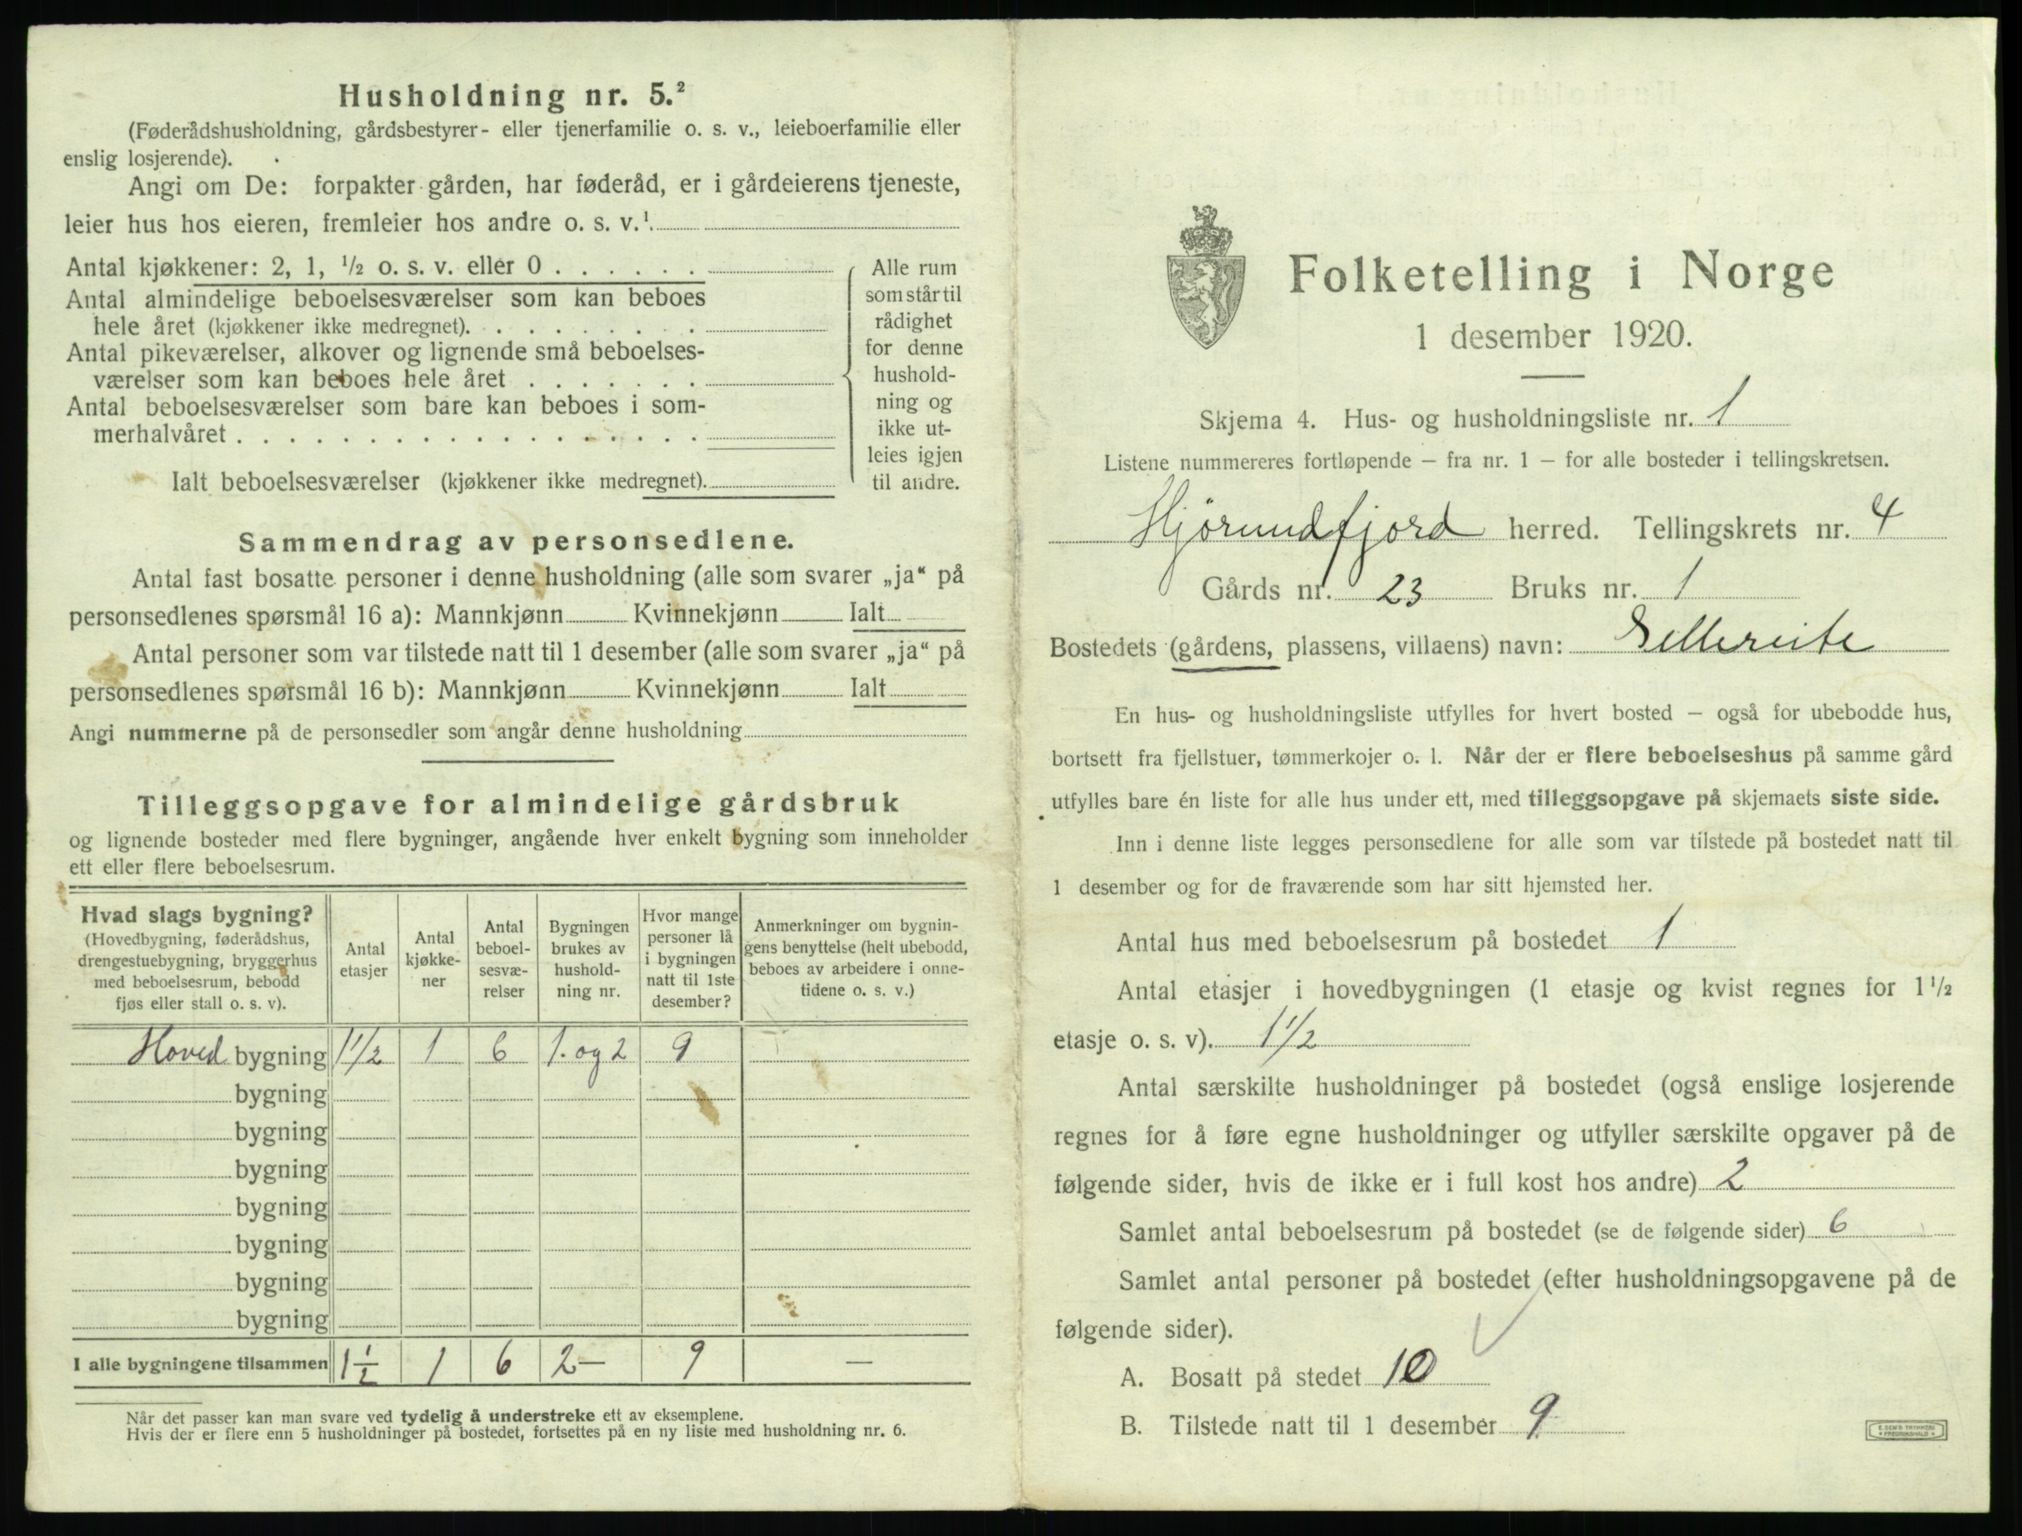 Husholdning nr. 5.²
(Føderådshusholdning, gårdsbestyrer- eller tjenerfamilie o. s. v., leieboerfamilie eller
enslig losjerende).
Angi om De: forpakter gården, har føderåd, er i gårdeierens tjeneste,
leier hus hos eieren, fremleier hos andre o. s. v.¹
Antal kjøkkener: 2, 1, ½ o. s. v. eller 0 . . . . . .
Antal almindelige beboelsesværelser som kan beboes
hele året (kjøkkener ikke medregnet). . . . . . . . .
Antal pikeværelser, alkover og lignende små beboelses-
værelser som kan beboes hele året . . . . . . .
Antal beboelsesværelser som bare kan beboes i som-
merhalvåret . . . . . . . . . . . . . . . . . .
Ialt beboelsesværelser (kjøkkener ikke medregnet).
Alle rum
som står til
rådighet
for denne
hushold-
ning og
ikke ut-
leies igjen
til andre.
Sammendrag av personsedlene.
Antal fast bosatte personer i denne husholdning (alle som svarer „ja“ på
personsedlenes spørsmål 16 a): Mannkjønn Kvinnekjønn Ialt
Antal personer som var tilstede natt til 1 desember (alle som svarer „ja“ på
personsedlenes spørsmål 16 b): Mannkjønn Kvinnekjønn Ialt
Angi nummerne på de personsedler som angår denne husholdning
Tilleggsopgave for almindelige gårdsbruk
og lignende bosteder med flere bygninger, angående hver enkelt bygning som inneholder
ett eller flere beboelsesrum.
Hvad slags bygning?
(Hovedbygning, føderådshus,
drengestuebygning, bryggerhus
med beboelsesrum, bebodd
fjøs eller stall o. s. v).
Antal
etasjer
Antal
kjøkke-
ner
Antal
beboel-
sesvæ-
relser
Bygningen
brukes av
hushold-
ning nr.
Hvor mange
personer lå
i bygningen
natt til 1ste
desember?
Anmerkninger om bygnin-
gens benyttelse (helt ubebodd,
beboes av arbeidere i onne-
tidene o. s. v.)
Hoved bygning 1½ 1 6 1. og 2 9
bygning
bygning
bygning
bygning
bygning
bygning
bygning
I alle bygningene tilsammen 1½ 1 6 2 – 9 —
Når det passer kan man svare ved tydelig å understreke ett av eksemplene.
Hvis der er flere enn 5 husholdninger på bostedet, fortsettes på en ny liste med husholdning nr. 6.
Folketelling i Norge
1 desember 1920.
Skjema 4. Hus- og husholdningsliste nr. 1
Listene nummereres fortløpende – fra nr. 1 – for alle bosteder i tellingskretsen.
Hjörundfjord herred. Tellingskrets nr. 4
Gårds nr. 23 Bruks nr. 1
Bostedets (gårdens, plassens, villaens) navn: Sellereite
En hus- og husholdningsliste utfylles for hvert bosted – også for ubebodde hus,
bortsett fra fjellstuer, tømmerkojer o. l. Når der er flere beboelseshus på samme gård
utfylles bare én liste for alle hus under ett, med tilleggsopgave på skjemaets siste side.
Inn i denne liste legges personsedlene for alle som var tilstede på bostedet natt til
1 desember og for de fraværende som har sitt hjemsted her.
Antal hus med beboelsesrum på bostedet 1
Antal etasjer i hovedbygningen (1 etasje og kvist regnes for 1½
etasje o. s. v). 1½
Antal særskilte husholdninger på bostedet (også enslige losjerende
regnes for å føre egne husholdninger og utfyller særskilte opgaver på de
følgende sider, hvis de ikke er i full kost hos andre) 2
Samlet antal beboelsesrum på bostedet (se de følgende sider) 6
Samlet antal personer på bostedet (efter husholdningsopgavene på de
følgende sider).
A. Bosatt på stedet 10
B. Tilstede natt til 1 desember 9